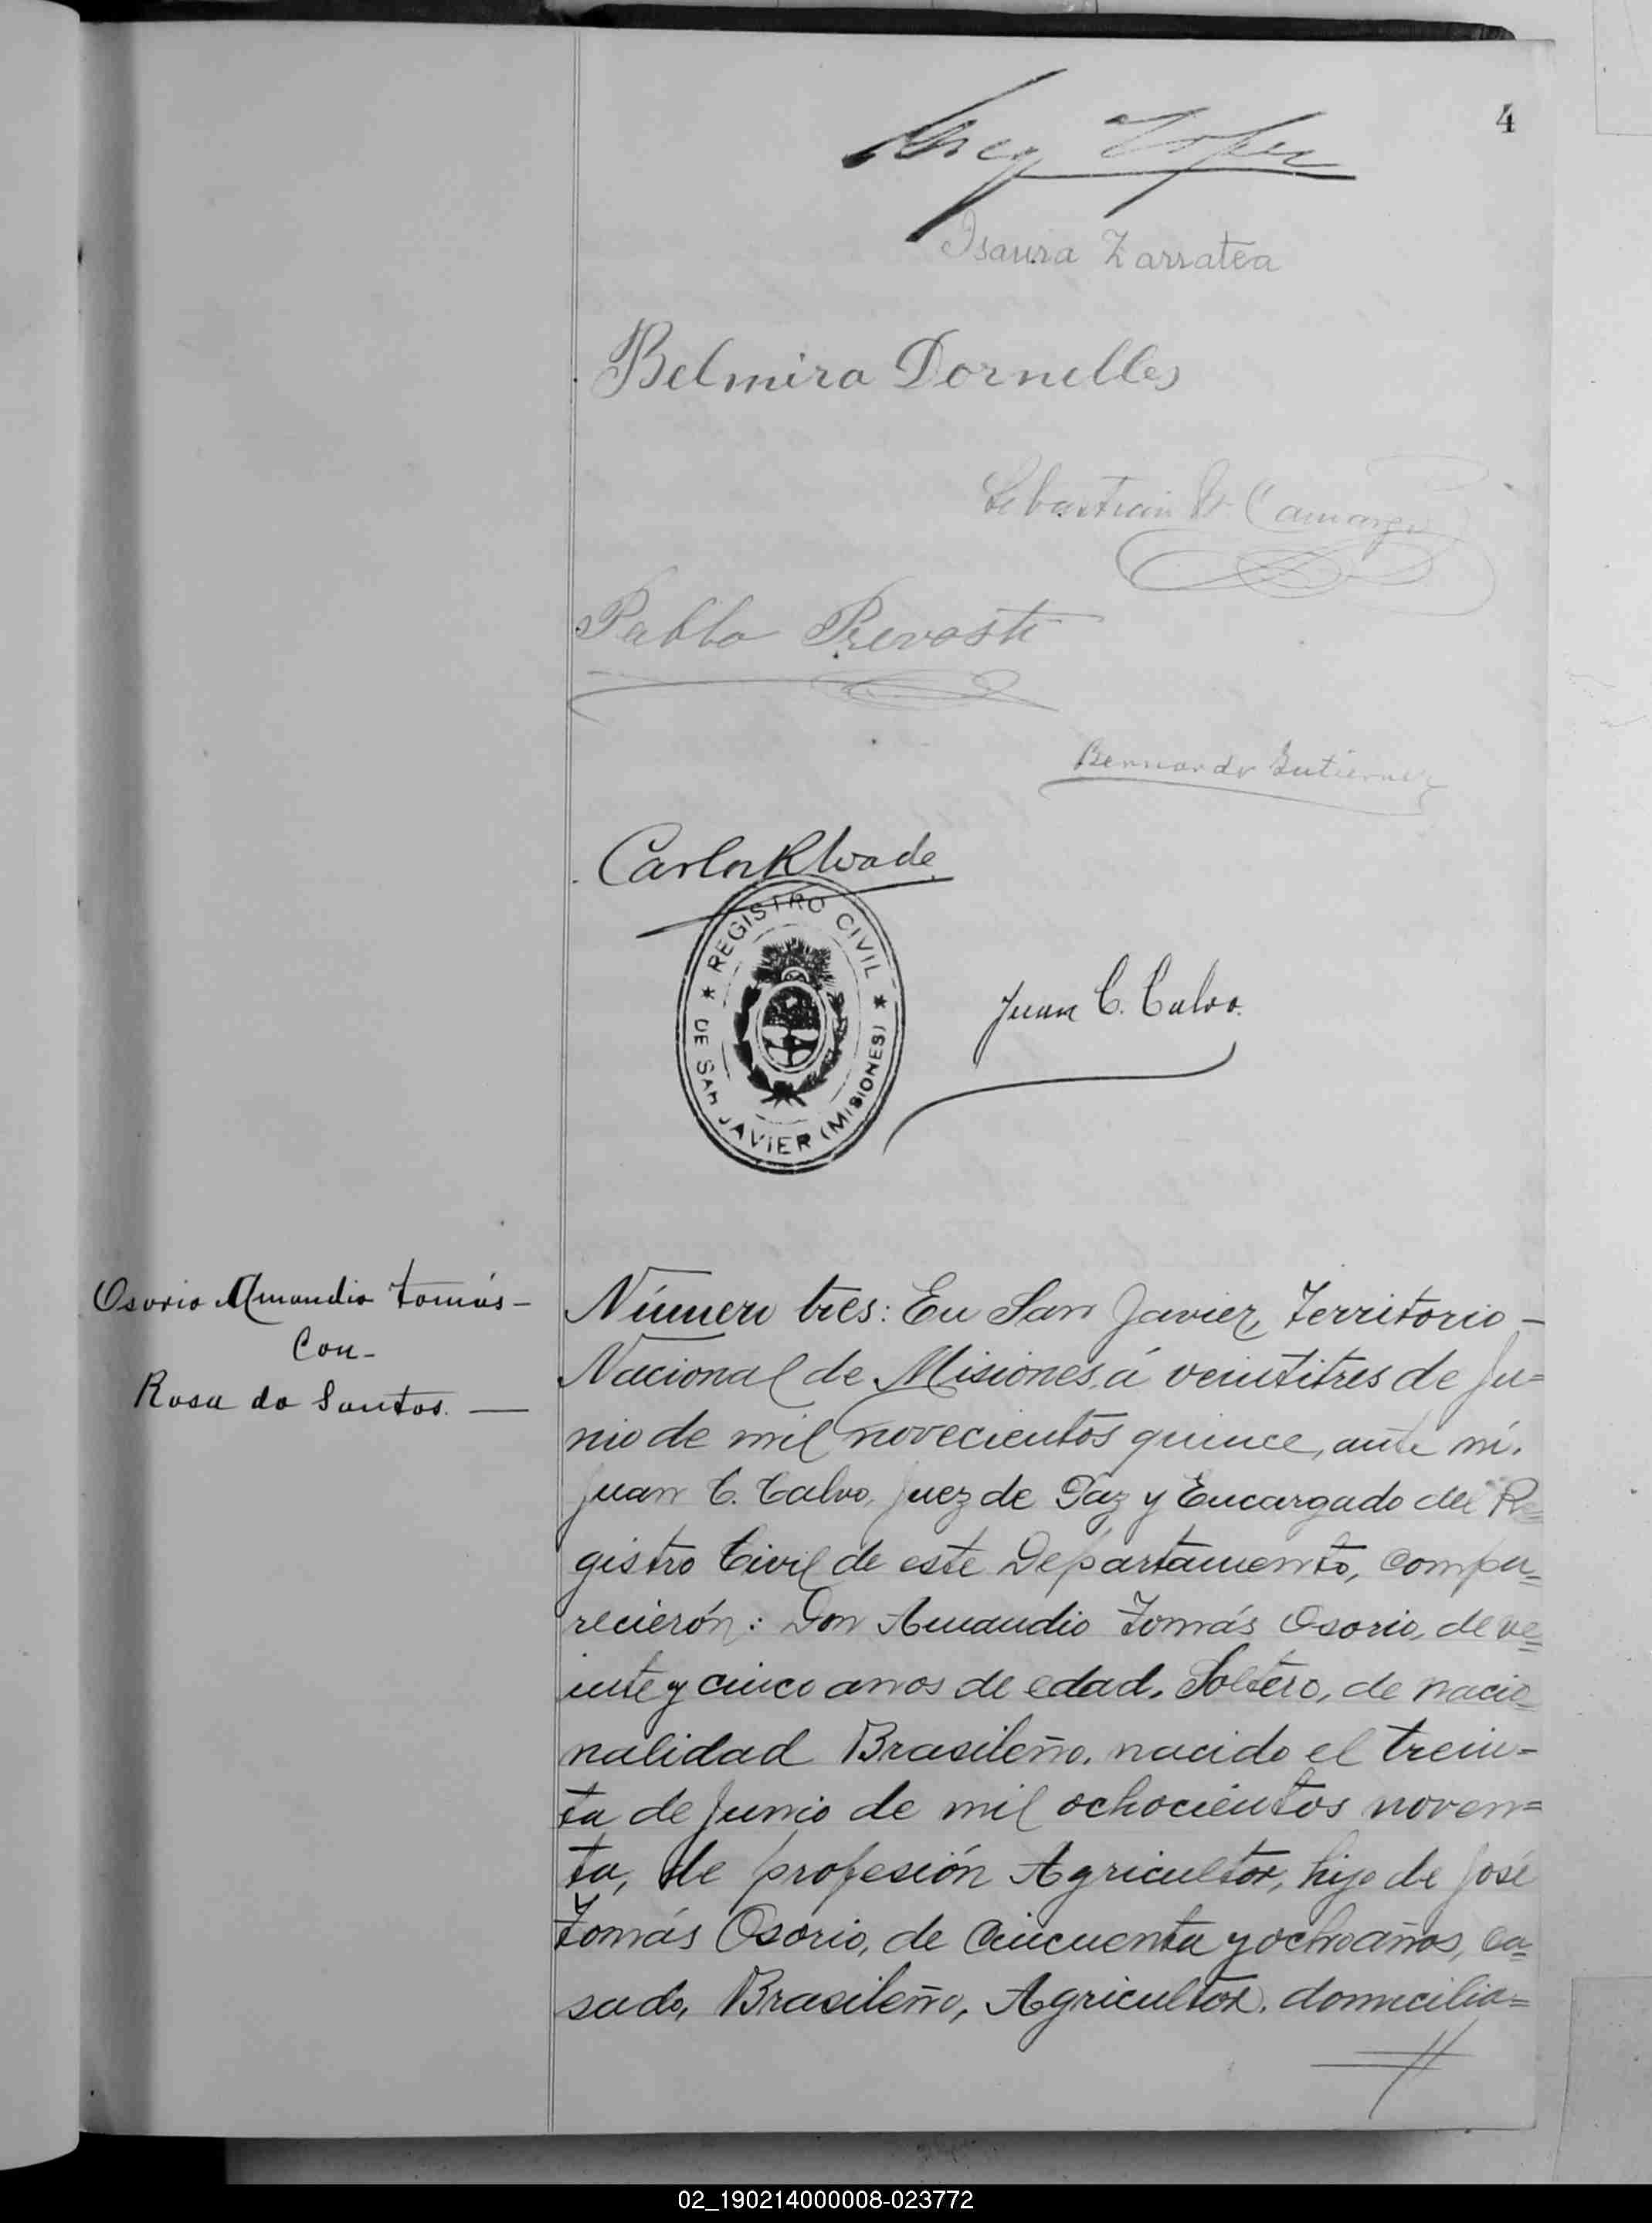 4
Lopez
Isaura Zarratea
Belmira Dornelles
Sebastian Camargo
Pablo Prevosti
Bernardo Gutierrez
Carlos R Wade
REGISTRO CIVIL
DE SAN JAVIER (MISIONES)
Juan C. Calvo.
Osorio Amandio Tomás-
Con-
Rosa do Santos. —
Número tres: En San Javier, Territorio -
Nacional de Misiones, á veintitres de Ju=
nio de mil novecientos quince, ante mí.
Juan C. Calvo, Juez de Paz y Encargado del Re=
gistro Civil de este Departamento, compa=
recierón: Don Amandio Tomás Osorio, de ve=
inte y cinco anos de edad, Soltero, de nacio=
nalidad Brasileño, nacido el trein=
ta de Junio de mil ochocientos noven=
ta, de profesión Agricultor, hijo de José
Tomás Osorio, de Cincuenta y ocho años, ca=
sado, Brasileño, Agricultor, domicilia=
02_190214000008-023772